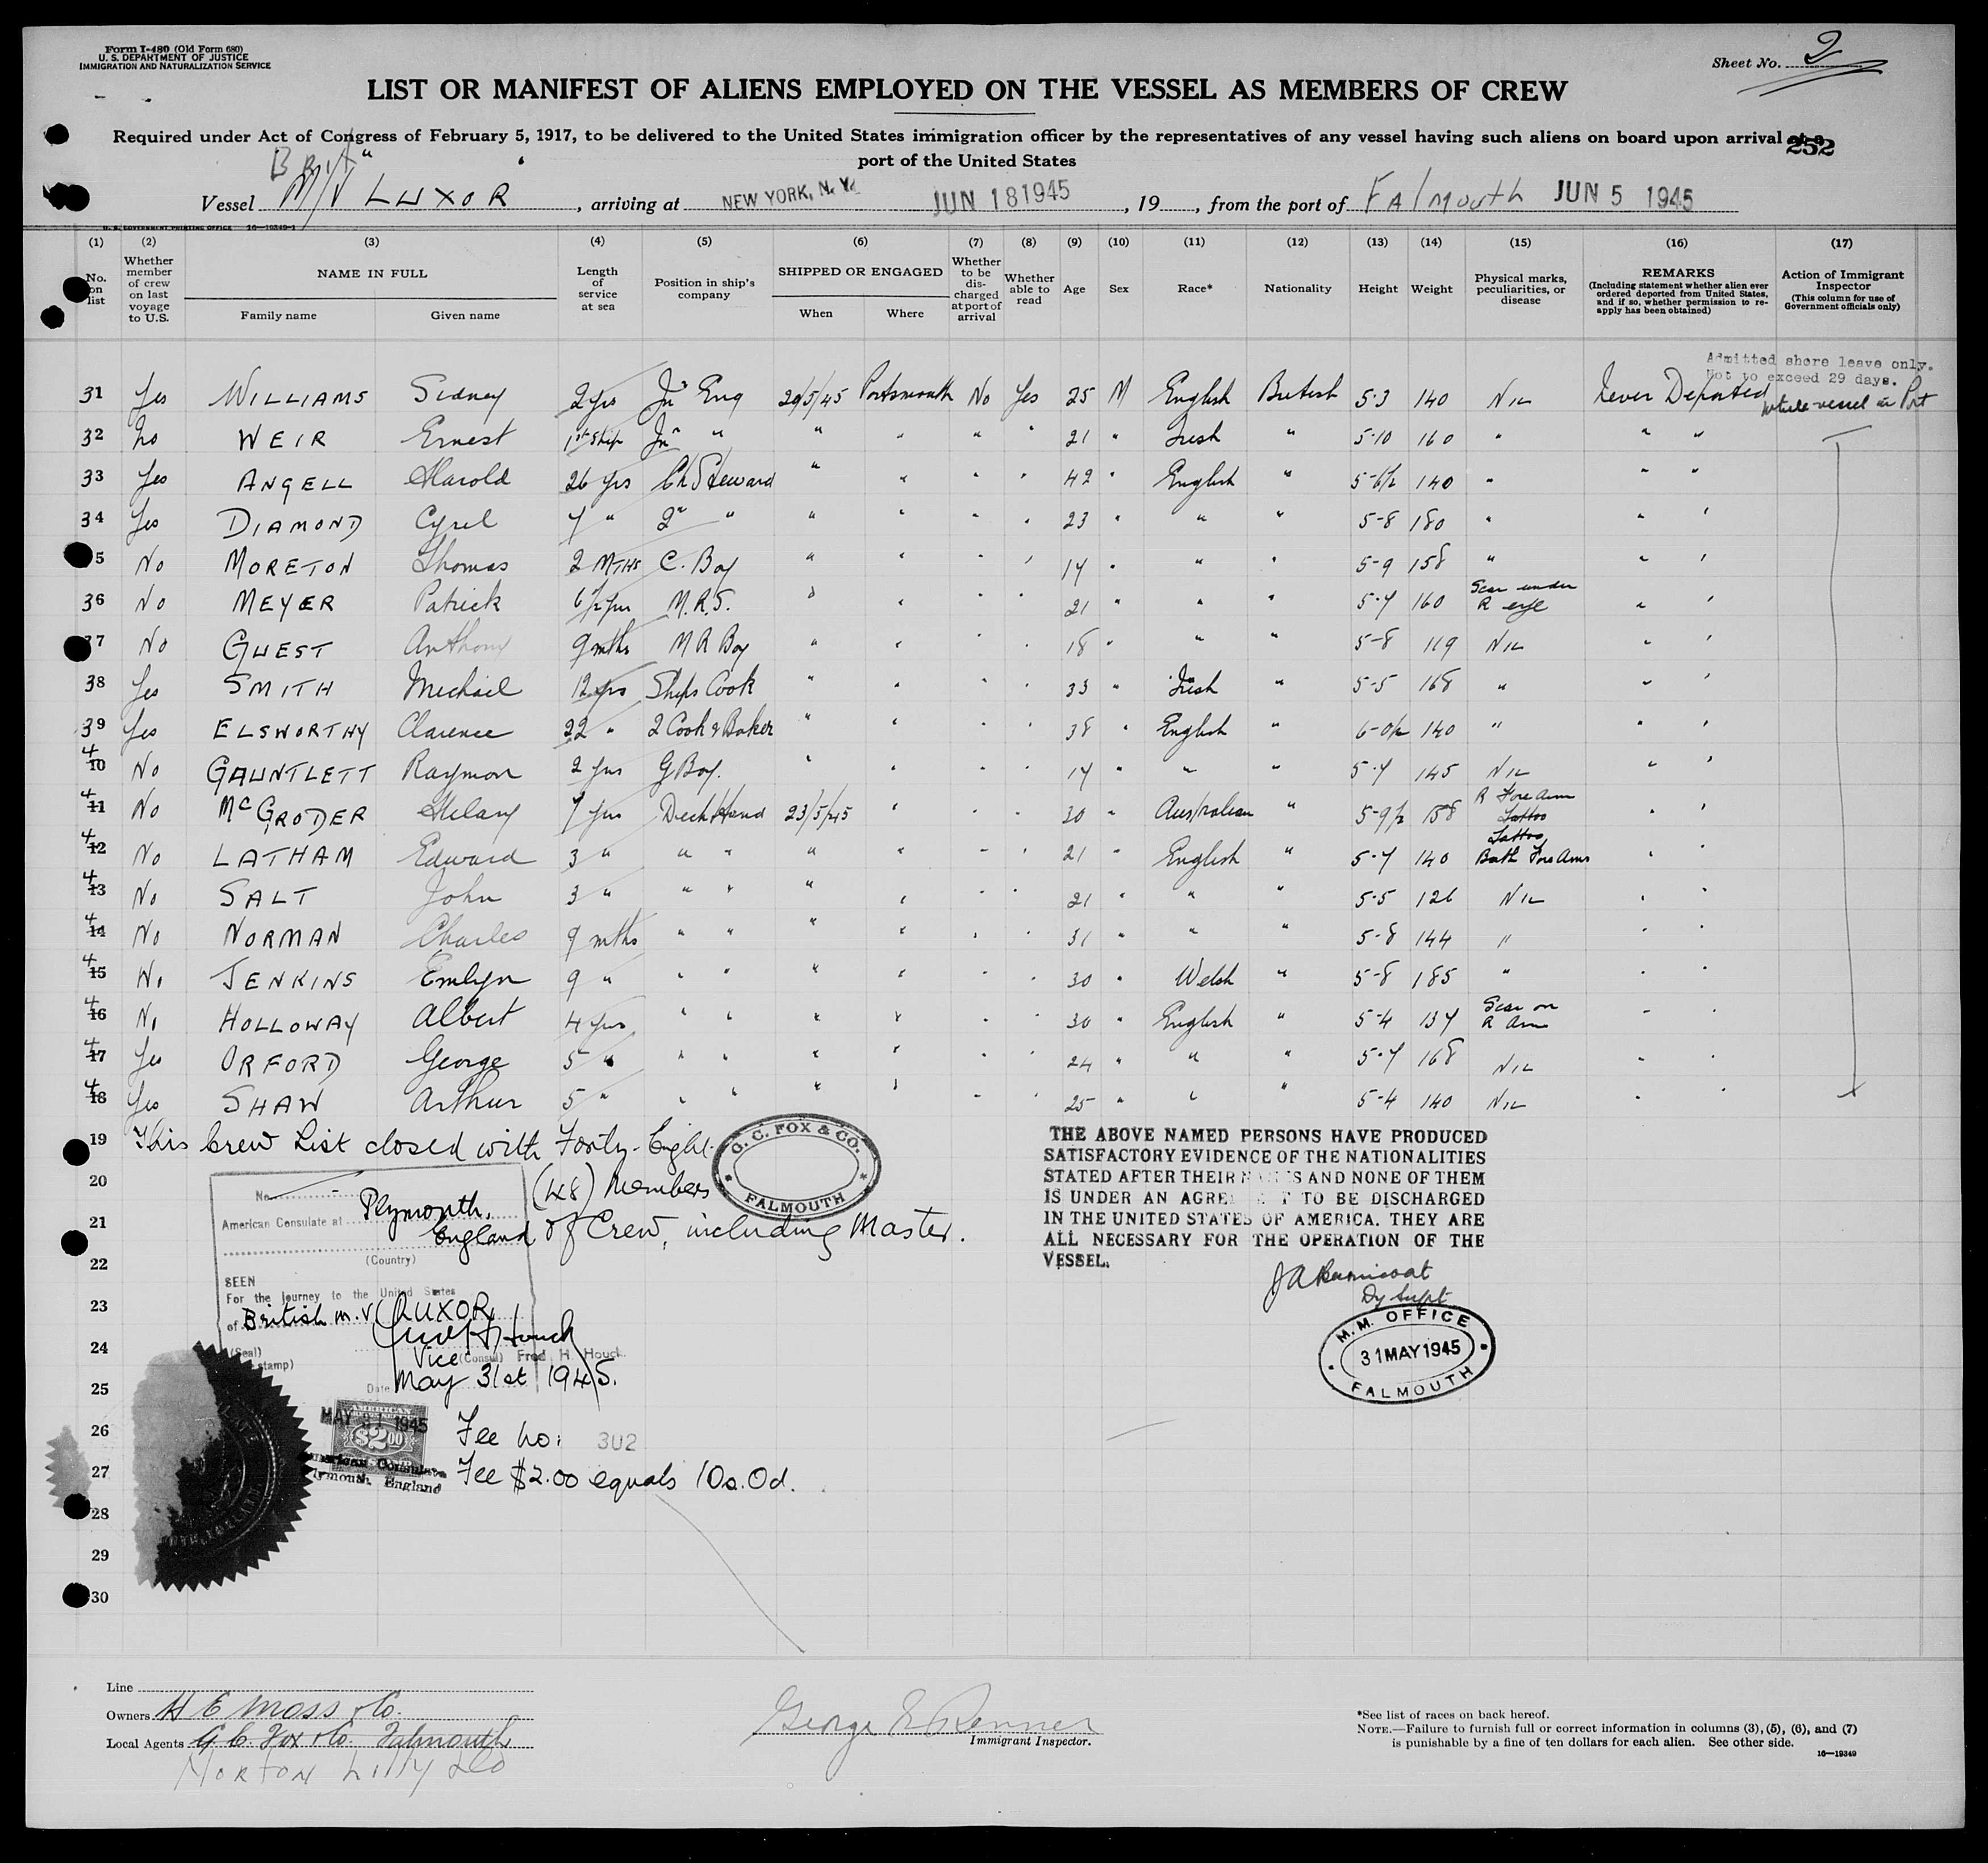 Form I-480 (Old Form 680)
U. S. DEPARTMENT OF JUSTICE
IMMIGRATION AND NATURALIZATION SERVICE
Sheet No. 2
LIST OR MANIFEST OF ALIENS EMPLOYED ON THE VESSEL AS MEMBERS OF CREW
Required under Act of Congress of February 5, 1917, to be delivered to the United States immigration officer by the representatives of any vessel having such aliens on board upon arrival at a
port of the United States
252
Brit
Vessel M/V LUXOR, arriving at NEW YORK, N.Y. JUN 18 1945, 19, from the port of Falmouth JUN 5 1945
U. S. GOVERNMENT PRINTING OFFICE 16—19349-1
(1) (2) (3) (4) (5) (6) (7) (8) (9) (10) (11) (12) (13) (14) (15) (16) (17)
No. on list
Whether member of crew on last voyage to U.S.
NAME IN FULL
Family name
Given name
Length of service at sea
Position in ship's company
SHIPPED OR ENGAGED
When
Where
Whether to be discharged at port of arrival
Whether able to read
Age
Sex
Race*
Nationality
Height
Weight
Physical marks, peculiarities, or disease
REMARKS
(Including statement whether alien ever ordered deported from United States, and if so, whether permission to reapply has been obtained)
Action of Immigrant Inspector
(This column for use of Government officials only)
Admitted shore leave only.
Not to exceed 29 days.
while vessel in Port
31 Yes WILLIAMS Sidney 2 yrs Jnr Eng 29/5/45 Portsmouth No Yes 25 M English British 5-3 140 Nil Never Deported
32 No WEIR Ernest 1st Ship Jnr " " " " " 21 " Irish " 5-10 160 " " "
33 Yes ANGELL Harold 26 yrs Ch Steward " " " " 42 " English " 5-6½ 140 " " "
34 Yes DIAMOND Cyril 7 " 2nd " " " " " 23 " " " 5-8 180 " " "
35 No MORETON Thomas 2 MTHS C. Boy " " " " 17 " " " 5-9 158 " " "
36 No MEYER Patrick 6½ yrs M.R.S. " " " " 21 " " " 5-7 160 Scar under R eye " "
37 No GUEST Anthony 9 mths M R Boy " " " " 18 " " " 5-8 119 Nil " "
38 Yes SMITH Michael 12 yrs Ships Cook " " " " 33 " Irish " 5-5 168 " " "
39 Yes ELSWORTHY Clarence 22 " 2 Cook & Baker " " " " 38 " English " 6-0½ 140 " " "
40 No GAUNTLETT Raymon 2 yrs G Boy. " " " " 17 " " " 5-7 145 Nil " "
41 No McGRODER Hilary 7 yrs Deck Hand 23/5/45 " " " 30 " Australian " 5-9½ 158 R Fore Arm Tattoo " "
42 No LATHAM Edward 3 " " " " " " " 21 " English " 5-7 140 Tattoo Both Fore Arms " "
43 No SALT John 3 " " " " " " " 21 " " " 5-5 126 Nil " "
44 No NORMAN Charles 9 mths " " " " " " 31 " " " 5-8 144 " " "
45 No JENKINS Emlyn 9 " " " " " " " 30 " Welsh " 5-8 185 " " "
46 No HOLLOWAY Albert 4 yrs " " " " " " 30 " English " 5-4 137 Scar on R Arm " "
47 Yes ORFORD George 5 " " " " " " " 24 " " " 5-7 168 Nil " "
48 Yes SHAW Arthur 5 " " " " " " " 25 " " " 5-4 140 Nil " "
19 This Crew List closed with Forty-Eight
20 (48) Members
21 of Crew, including Master.
22
23
24
25
26
27
28
29
30
G. C. FOX & CO.
FALMOUTH
No.
American Consulate at Plymouth,
England
(Country)
SEEN
For the journey to the United States
of British m.v. LUXOR
(Seal)
stamp)
Vice (Consul) Fred H. Houck
Date May 31st 1945.
MAY 31 1945
AMERICAN
$2.00
American Consulate
Plymouth, England
Fee No: 302
Fee $2.00 equals 10s.0d.
THE ABOVE NAMED PERSONS HAVE PRODUCED
SATISFACTORY EVIDENCE OF THE NATIONALITIES
STATED AFTER THEIR NAMES AND NONE OF THEM
IS UNDER AN AGREEMENT TO BE DISCHARGED
IN THE UNITED STATES OF AMERICA. THEY ARE
ALL NECESSARY FOR THE OPERATION OF THE
VESSEL.
Dy Supt
M.M. OFFICE
31 MAY 1945
FALMOUTH
Line
Owners H E Moss & Co.
Local Agents G. C. Fox & Co. Falmouth
NORTON LILLY & CO
George E Renner
Immigrant Inspector.
*See list of races on back hereof.
NOTE.—Failure to furnish full or correct information in columns (3), (5), (6), and (7)
is punishable by a fine of ten dollars for each alien. See other side.
16—19349